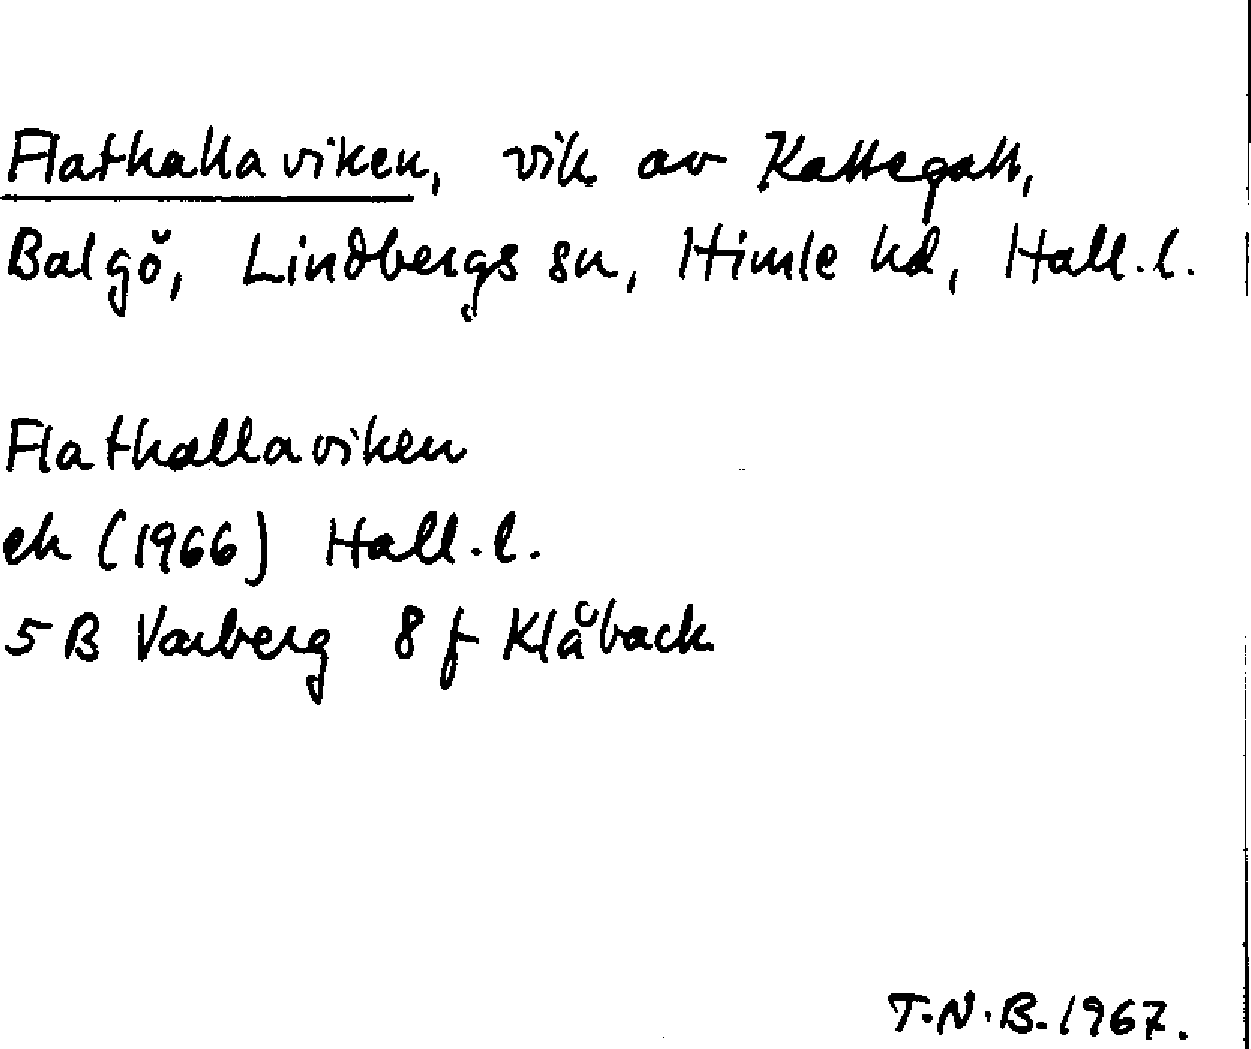 Flathallaviken, vik av Kattegatt,
Balgö, Lindbergs sn, Himle hd, Hall. l.
Flathallaviken
ek (1966) Hall. l.
5 B Varberg 8 f Klåback
T.N.B. 1967.